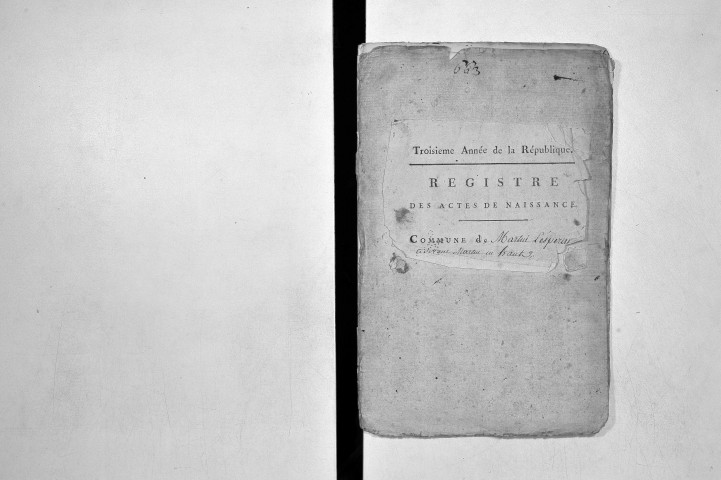 Troisieme Année de la République.
REGISTRE
DES ACTES DE NAISSANCE.
COMMUNE de Martel
en haut